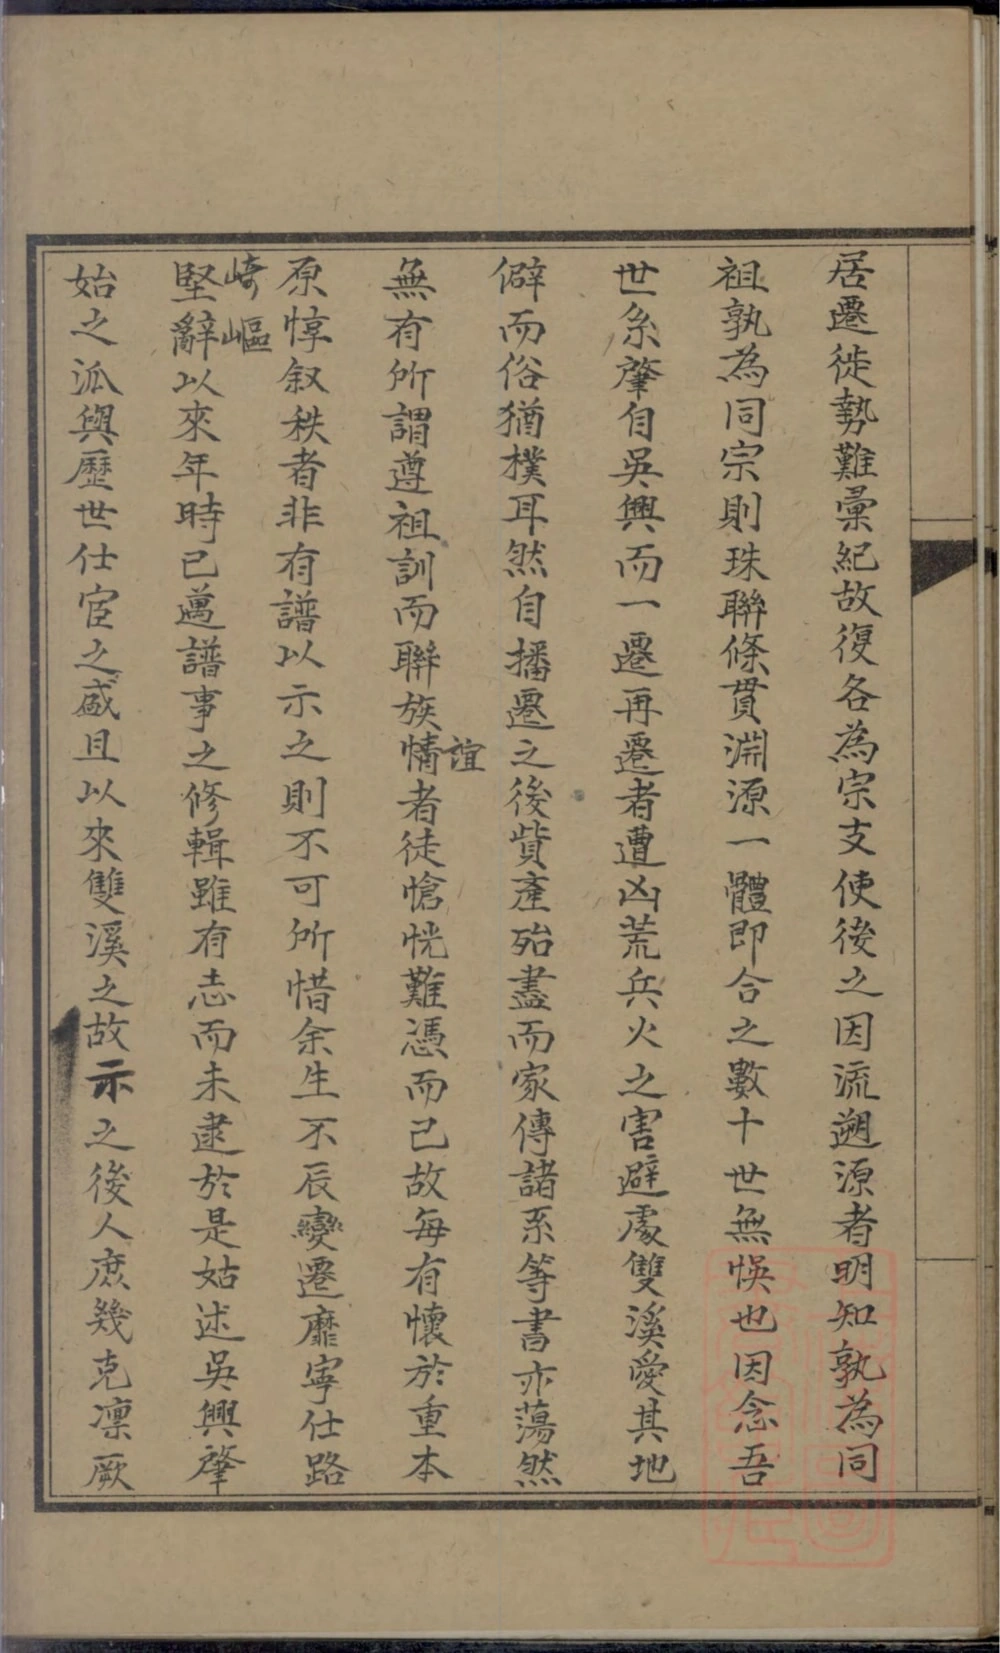 居遷徙勢難彙紀故復各為宗支使後之因流遡源者明知孰為同
祖孰為同宗則珠聯條貫淵源一體即合之數十世無悞也因念吾
世系肇自吳興而一遷再遷者遭凶荒兵火之害避處雙溪愛其地
僻而俗猶樸耳然自播遷之後貲產殆盡而家傳諸系等書亦蕩然
無有所謂遵祖訓而聯族情誼者徒愴恍難憑而已故每有懷於重本
原惇叙秩者非有譜以示之則不可所惜余生不辰變遷靡寧仕路
崎嶇
堅辭以來年時已邁譜事之修輯雖有志而未逮於是姑述吳興肇
始之派與歷世仕宦之盛且以來雙溪之故示之後人庶幾克凛厥